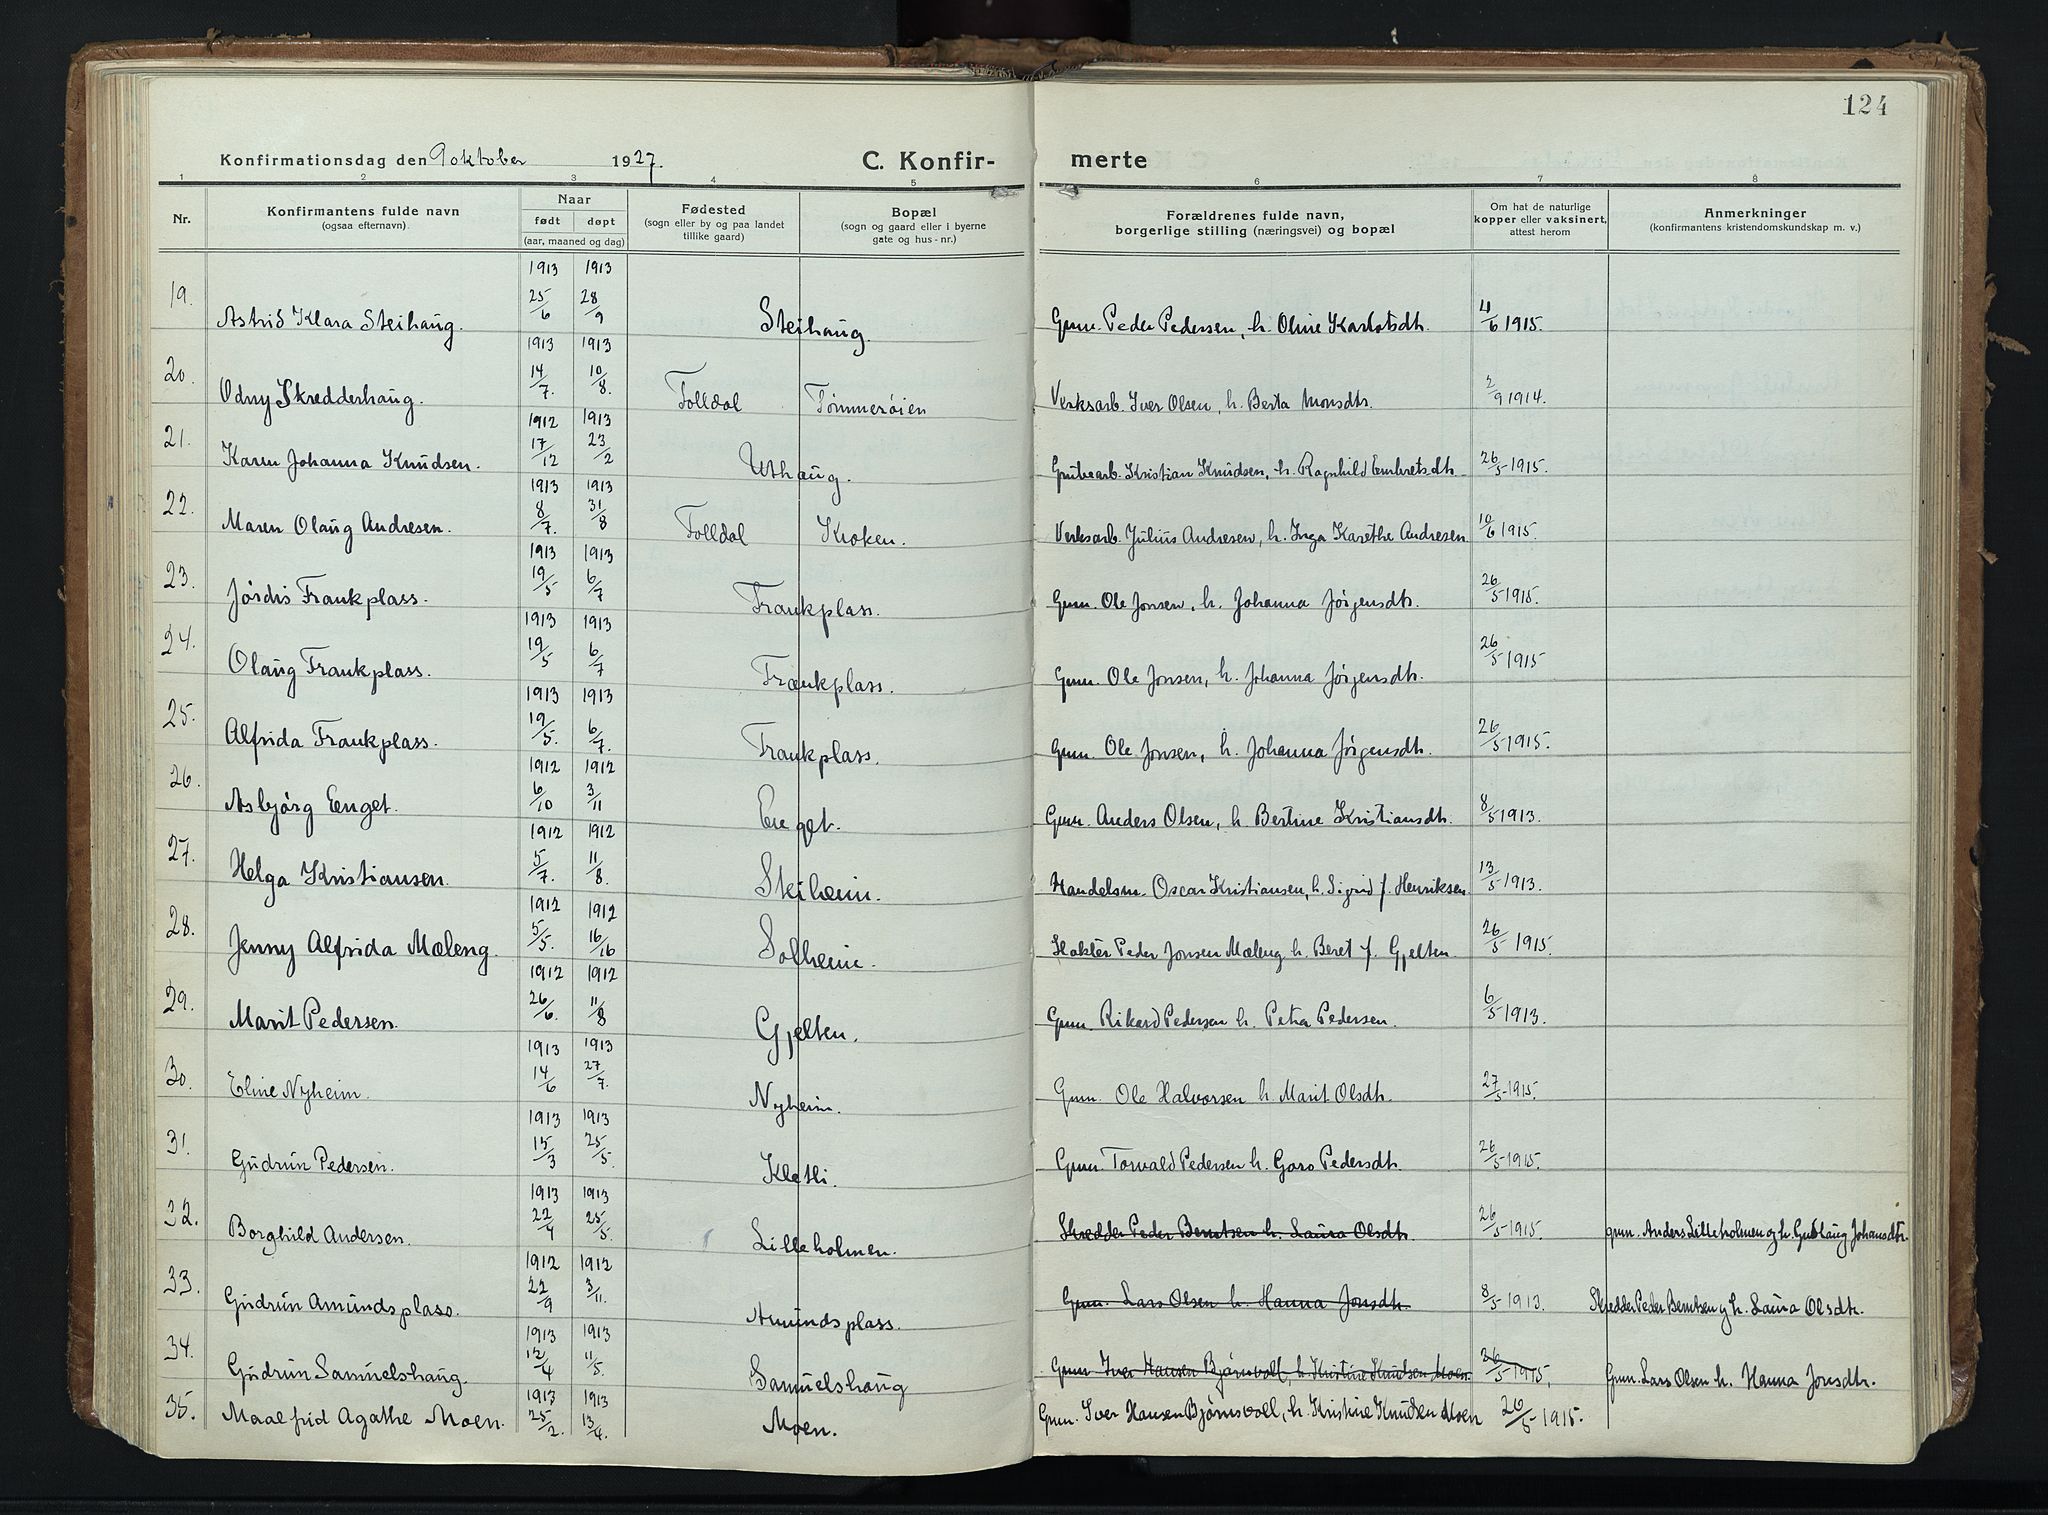 124
Konfirmationsdag den 9 oktober 1927. C. Konfir- merte
1 2 3 4 5 6 7 8
Nr. Konfirmantens fulde navn (ogsaa efternavn). Naar født døpt (aar, maaned og dag) Fødested (sogn eller by og paa landet tillike gaard) Bopæl (sogn og gaard eller i byerne gate og hus-nr.) Forældrenes fulde navn, borgerlige stilling (næringsvei) og bopæl Om hat de naturlige kopper eller vaksinert, attest herom Anmerkninger (konfirmantens kristendomskundskap m. v.)
19. Astrid Klara Steihaug. 1913 25/6 1913 28/9 Steihaug. Gmn. Peder Pedersen, h. Oline Karlotsdtr. 4/6 1915.
20. Odny Skredderhaug. 1913 14/7. 1913 10/8. Folldal Tømmerøien Verksarb. Iver Olsen, h. Berta Monsdtr. 2/9 1914.
21. Karen Johanna Knudsen. 1912 17/12 1913 23/2 Uthaug. Grubearb. Kristian Knudsen, h. Ragnhild Embretsdtr 26/5 1915.
22. Maren Olaug Andresen. 1913 8/7. 1913 31/8 Folldal Kroken. Verksarb. Julius Andresen, h. Inga Karethe Andresen 10/6 1915.
23. Jørdis Frankplass. 1913 19/5 1913 6/7 Frankplass. Gmn. Ole Jonsen, h. Johanna Jørgensdtr. 26/5 1915.
24. Olaug Frankplass. 1913 19/5 1913 6/7 Frankplass. Gmn. Ole Jonsen, h. Johanna Jørgensdtr. 26/5 1915
25. Alfrida Frankplass. 1913 19/5. 1913 6/7. Frankplass. Gmn. Ole Jonsen, h. Johanna Jørgensdtr. 26/5 1915.
26. Asbjørg Enget. 1912 6/10 1912 3/11 Enget. Gmn. Anders Olsen, h. Bertine Kristiansdtr. 8/5 1913.
27. Helga Kristiansen. 1912 5/7. 1912 11/8. Steiheim. Handelsm. Oscar Kristiansen, h. Sigrid f. Henriksen 13/5 1913.
28. Jenny Alfrida Mæleng. 1912 5/5. 1912 16/16 Solheim. Peder Jonsen Mæleng h. Beret f. Gjelten. 26/5 1915.
29. Marit Pedersen. 1912 26/6. 1912 11/8 Gjelten. Gmn. Rikard Pedersen h. Petra Pedersen. 6/5 1913.
30. Eline Nyheim. 1913 14/6 1913 27/7. Nyheim. Gmn. Ole Halvorsen h. Marit Olsdtr. 27/5 1915.
31. Gudrun Pedersen. 1913 15/3 1913 25/5. Kletli. Gmn. Torvald Pedersen h. Goro Pedersdtr. 26/5 1915.
32. Borghild Andersen. 1913 22/4 1913 25/5. Lilleholmen. Skredder Peder Berntsen h. Laura Olsdtr. 26/5 1915. gmn. Anders Lilleholmen og h. Gudlaug Johansdtr.
33. Gudrun Amundsplass. 1912 22/9 1912 3/11. Amundsplass. Gmn. Lars Olsen h. Hanna Jonsdtr. 8/5 1913. Skredder Peder Berntsen og h. Laura Olsdtr.
34. Gudrun Samuelshaug. 1913 12/4 1913 11/5. Samuelshaug Gmn. Iver Hansen Bjørnsvoll, h. Kristine Knudsen Moen. 26/5 1915. Gmn. Lars Olsen h. Hanna Jonsdtr.
35. Maalfrid Agathe Moen. 1913 25/2. 1913 13/4. Moen. Gmn. Iver Hansen Bjørnsvoll, h. Kristine Knudsen Moen 26/5 1915.